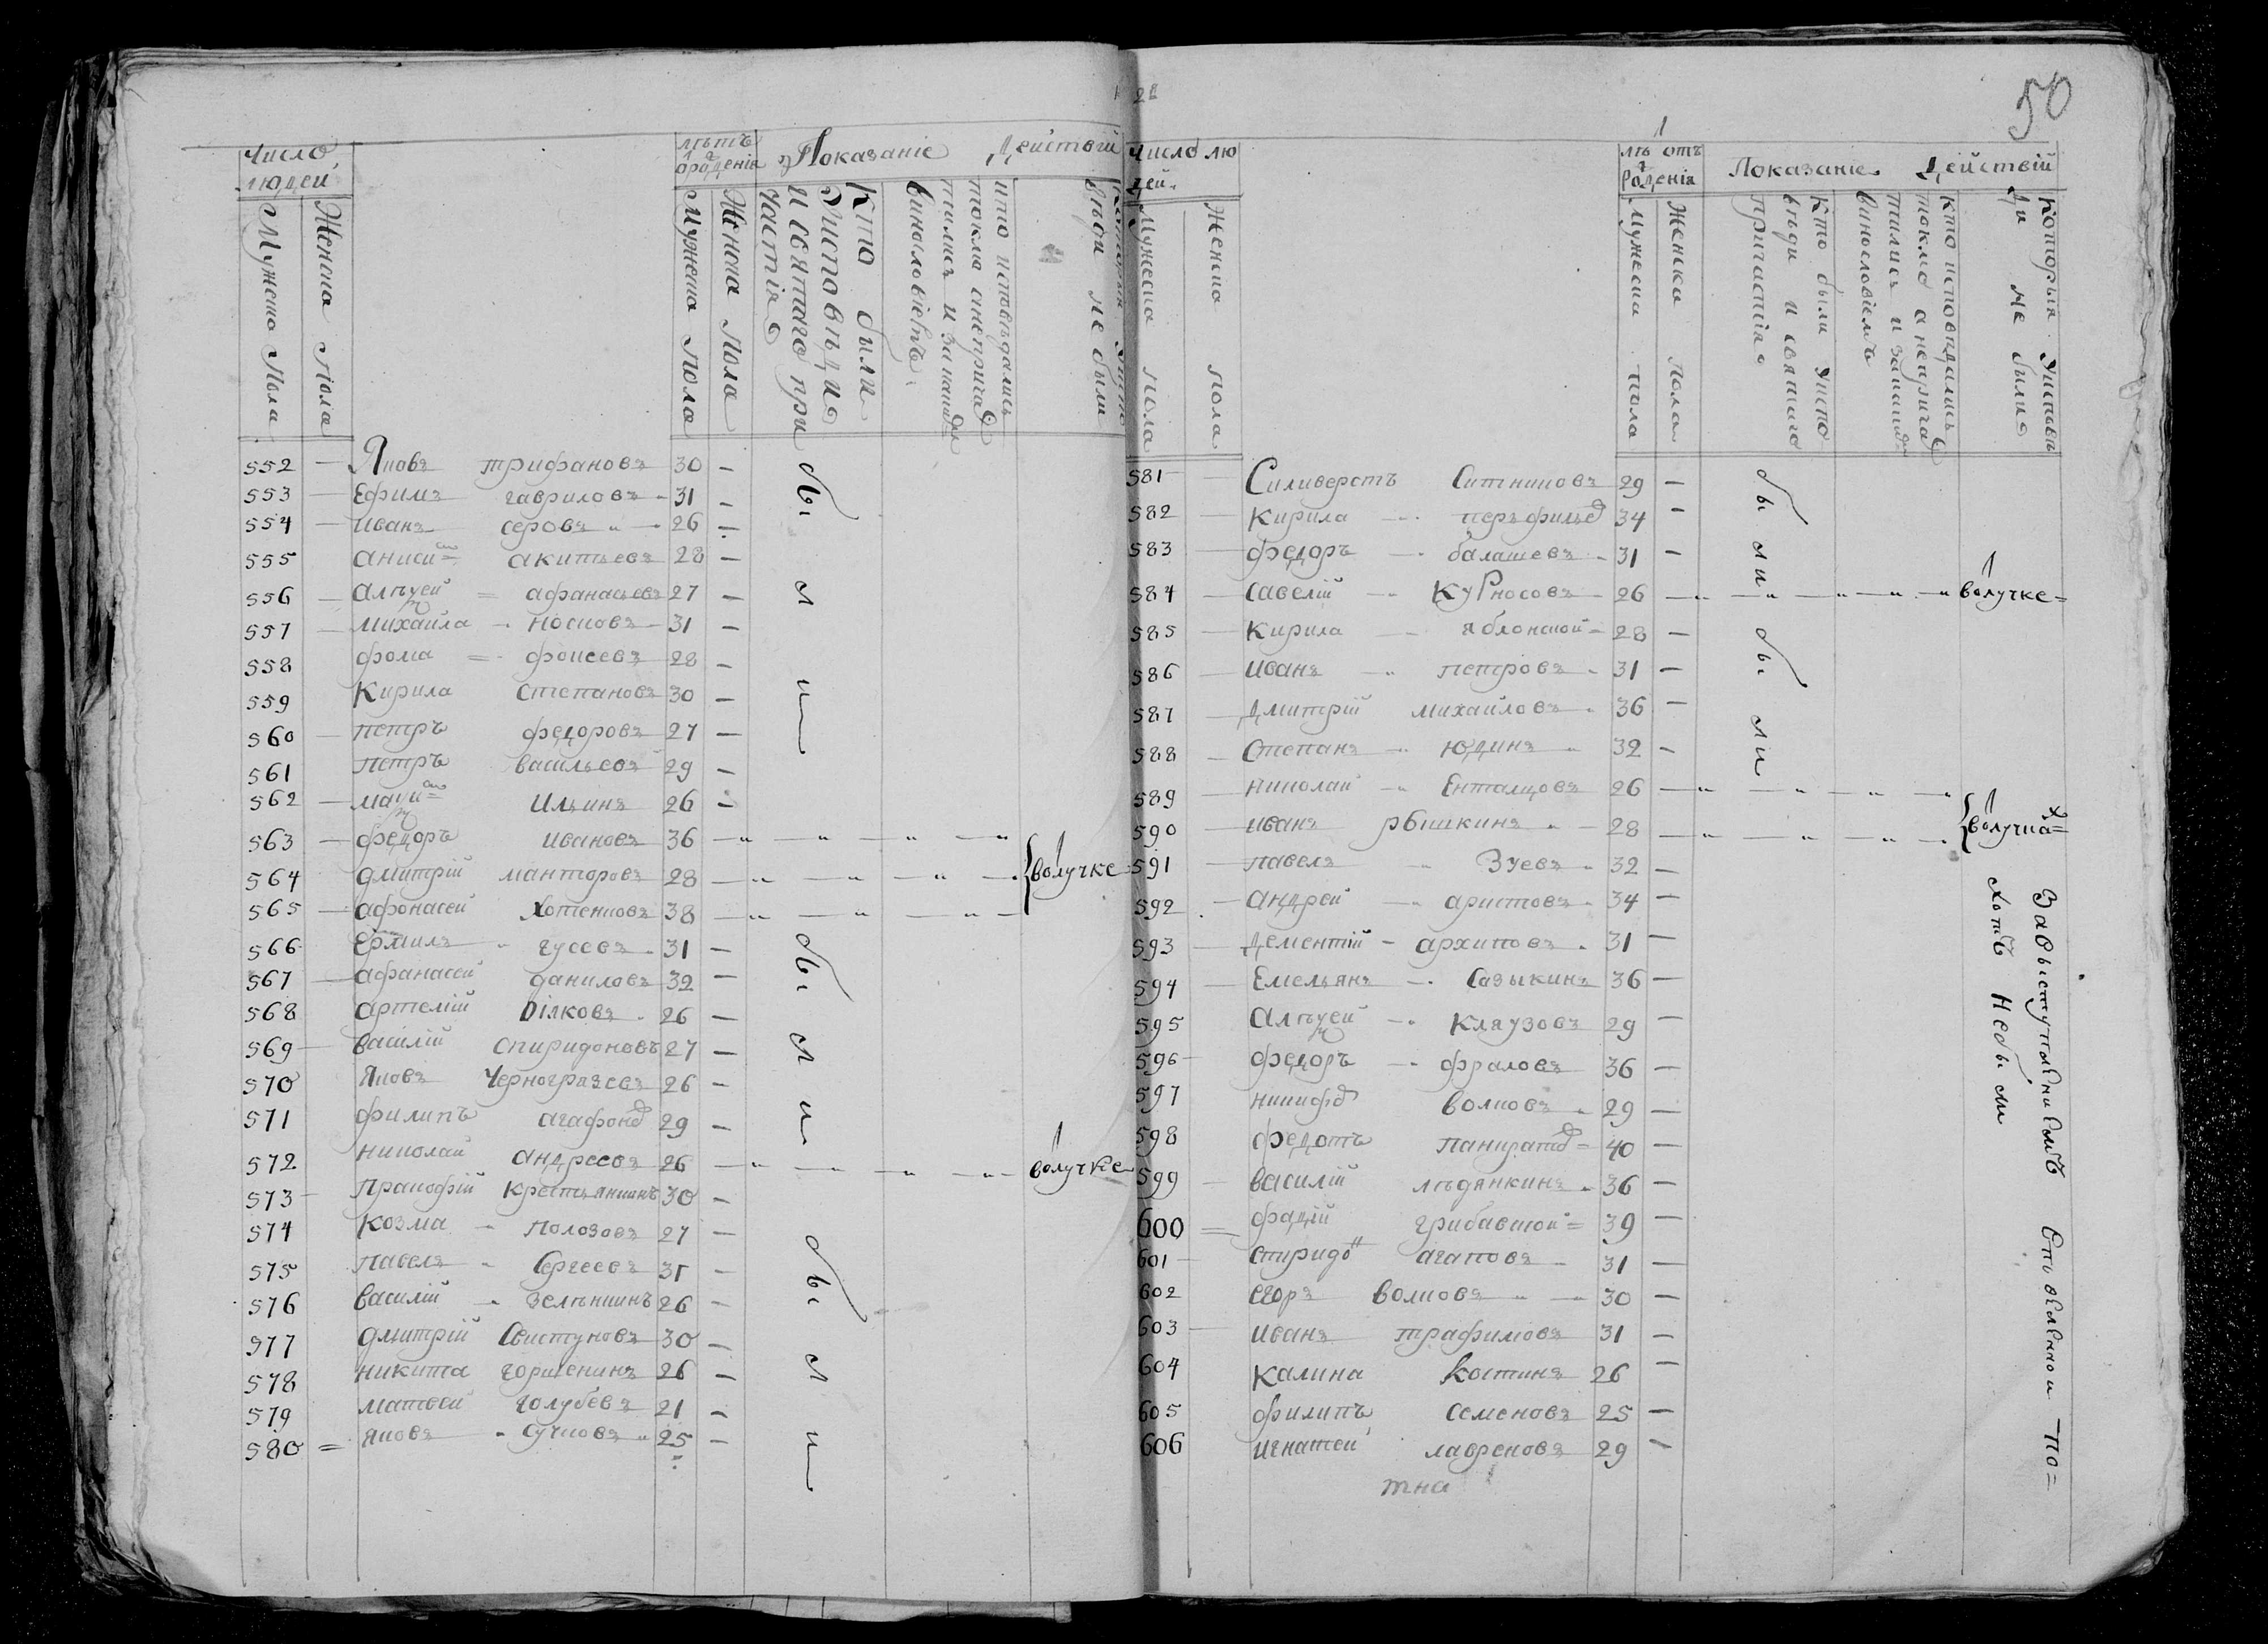 50
Число людей
Мужеска Пола
Женска пола
лѣтъ от рожденія
Мужеска пола
Женска Пола
Показаніе Действій
Кто были Уисповѣди и святаго причастія
кто исповѣдались токмо а непричастились и закакимъ винословіемъ
которыя Уисповѣди не были
552 — Яковъ трифановъ 30 —
553 — Ефимъ гавриловъ 31 —
554 — иванъ серовъ 26 —
555 аниси акитьевъ 28 —
556 — алѣѯей афанасьевъ 27 —
557 — михаила носковъ 31 —
558 фома фокеевъ 28 —
559 Кирила степановъ 30 —
560 — петръ федоровъ 27 —
561 петръ васильевъ 29 —
562 — маѯи Ильинъ 26 —
563 — федоръ ивановъ 36
564 дмитрій манторовъ 28 вѡлучке
565 — афонасей Хотенновъ 38
566 Ермилъ гусевъ 31 —
567 — афанасей даниловъ 32 —
568 артемій Діяковъ 26 —
569 — василій спиридоновъ 27 —
570 Яковъ Черногразевъ 26 —
571 филипъ агафоно 29 —
572 николай андреевъ 26 вѡлучке
573 — пракофій крестьянинъ 30 —
574 козма полозовъ 27 —
575 павелъ Сергеевъ 31 —
576 василій зелѣнинъ 26 —
577 дмитрій Свистуновъ 30 —
578 никита горшенинъ 26 —
579 матвей голубевъ 21 —
580 = яковъ сучковъ 25 —
были
были
были
Число людей
Мужеска пола
Женска пола
лѣ отъ рожденія
Мужеска пола
Женска пола
Показаніе Действій
Кто были Уисповѣди и святаго причастія
кто исповѣдались токмо а непричастились и закакимъ винословіемъ
которыя Уисповѣди не были
581 — Силиверстъ Ситниковъ 29 —
582 — Кирила перфилье 34 —
583 — федоръ балашевъ 31 —
584 — савелій Курносовъ 26 вѡлучке
585 — Кирила яблонской 28 —
586 — иванъ петровъ 31 —
587 — дмитрій михайловъ 36 —
588 — степанъ юдинъ 32 —
589 — николай Енталцовъ 26
590 — иванъ рбишкинъ 28 вѡлучка
591 — павелъ Зуевъ 32 —
592 — андрей аристовъ 34 —
593 — дементій архиповъ 31 —
594 — Емельянъ Сазыкинъ 36 —
595 алѣѯей Кляузовъ 29 —
596 — федоръ фраловъ 36 —
597 никифо волковъ 29 —
598 федотъ панкрато 40 —
599 — василій лѣдянкинъ 36 —
600 = фадій грибавской 39 —
601 — спиридо агаповъ 31 —
602 егоръ волковъ 30 —
603 — иванъ трафимовъ 31 —
604 калина костинъ 26 —
605 филипъ семеновъ 25 —
606 игнатей лавреновъ 29 —
тна
были
были